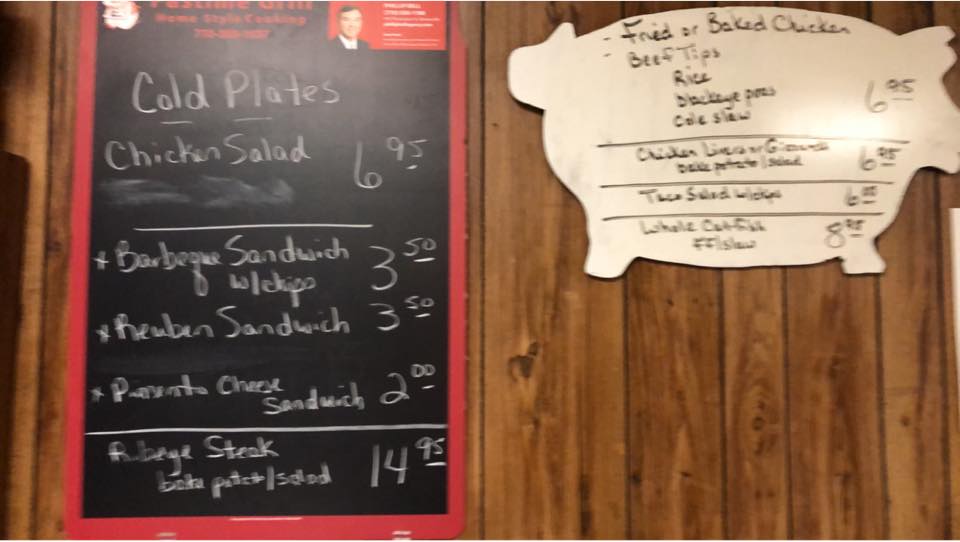 Pastime Grill
Home Style Cooking
Cold Plates
Chicken Salad 6 95
* Barbeque Sandwich 3 50
w/chips
* Reuben Sandwich 3 50
* Pimento Cheese
Sandwich 2 00
Ribeye Steak
bake potato/salad 14 95
- Fried or Baked Chicken
- Beef Tips
Rice
blackeye peas
Cole slaw 6 95
Chicken Livers or Gizzards
bake potato/salad 6 95
Taco Salad w/chips 6 00
Whole Catfish
FF/slaw 8 95